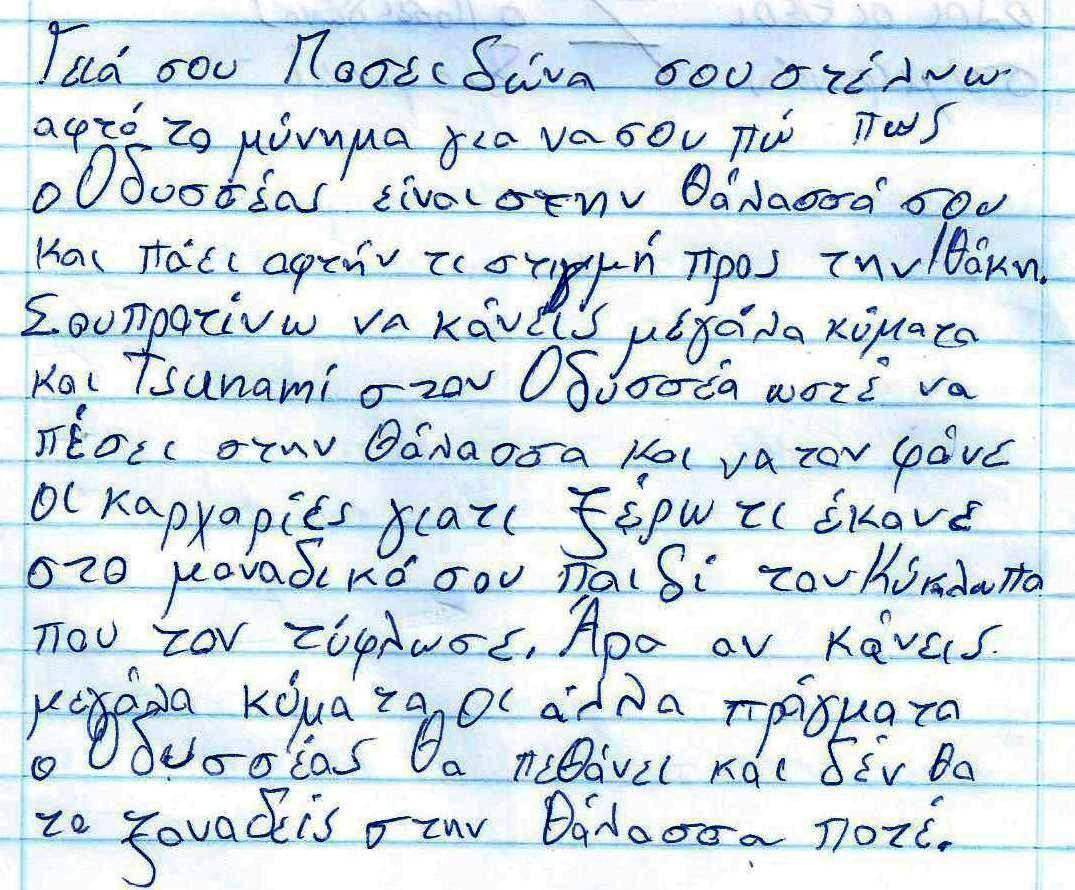 Γειά σου Ποσειδώνα σου στέλνω
αφτό το μύνημα για να σου πώ πως
ο Οδυσσέας είναι στην θάλασσά σου
και πάει αφτήν τι στιγμή προς την Ιθάκη.
Σου προτίνω να κάνεις μεγάλα κύματα
και Tsunami στον Οδυσσέα ωστέ να
πέσει στην θάλασσα και να τον φάνε
οι καρχαρίες γιατι ξέρω τι έκανε
στο μοναδικό σου παιδί τον Κύκλωπα
που τον τύφλωσε. Άρα αν κάνεις
μεγάλα κύματα οι άλλα πράγματα
ο Οδυσσέας θα πεθάνει και δέν θα
το ξαναδείς στην θάλασσα ποτέ.